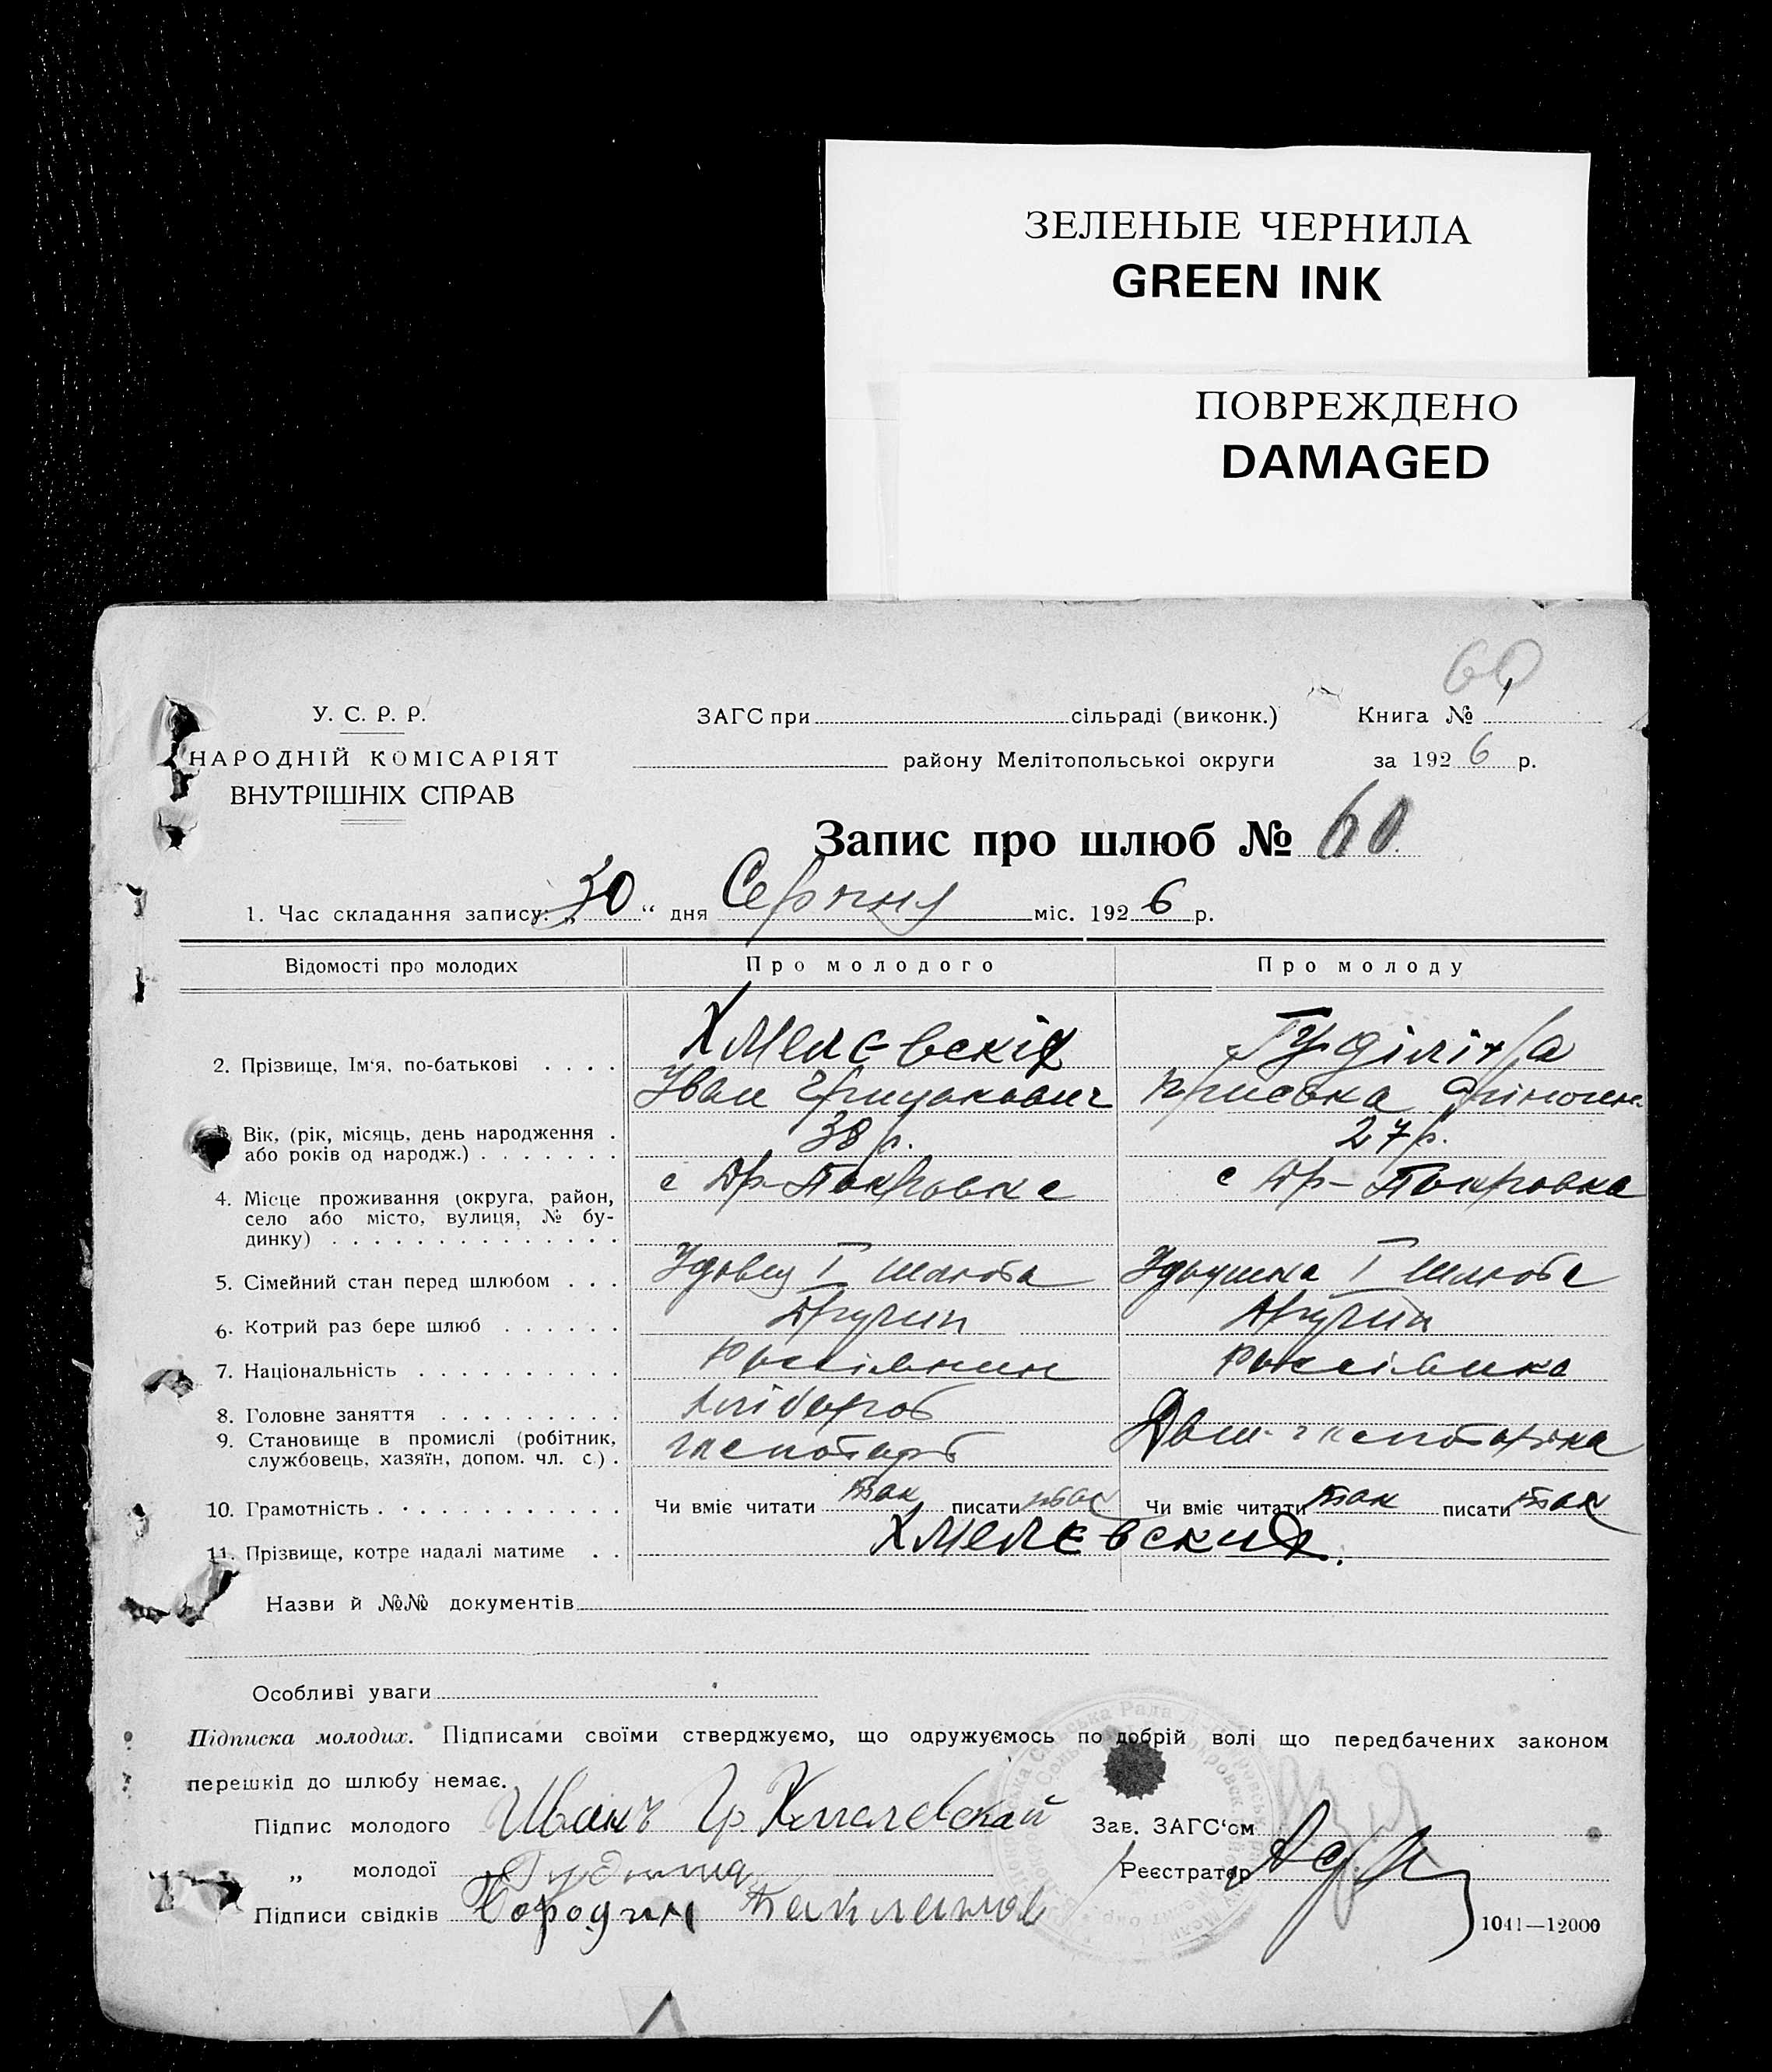 ЗЕЛЕНЫЕ ЧЕРНИЛА
GREEN INK
ПОВРЕЖДЕНО
DAMAGED
60
У. С. Р. Р.
ЗАГС при сільраді (виконк.) Книга №
НАРОДНІЙ КОМІСАРІЯТ
району Мелітопольскоі округи за 1926 р.
ВНУТРІШНІХ СПРАВ
Запис про шлюб № 60
1. Час складання запису: „30“ дня Серпня міс. 1926 р.
Відомості про молодих Про молодого Про молоду
2. Прізвище, Ім‘я, по-батькові . . . . Хмелєвскій
Іван Грицькович
Вік, (рік, місяць, день народження . 38 р. 27 р.
або років од народж.) . . . . . . .
4. Місце проживання (округа, район, с Др-Покровка с Др-Покровка
село або місто, вулиця, № бу-
динку) . . . . . . . . . . . . . .
5. Сімейний стан перед шлюбом . . . Удовец І шлюба Удовушка І шлюба
6. Котрий раз бере шлюб . . . . . . Другий Другий
7. Національність . . . . . . . . . .
8. Головне заняття . . . . . . . . . Хлібороб
9. Становище в промислі (робітник,
службовець, хазяїн, допом. чл. с.) . господарь Дом. господарка
10. Грамотність . . . . . . . . . . . Чи вміє читати так писати так Чи вміє читати так писати так
11. Прізвище, котре надалі матиме . . Хмелєвский.
Назви й №№ документів
Особливі уваги
Підписка молодих. Підписами своїми стверджуємо, що одружуємось по добрій волі що передбачених законом
перешкід до шлюбу немає.
Підпис молодого Иванъ Гр Хмелевскай Зав. ЗАГС‘ом
„ молодої Реєстратор
Підписи свідків Бородин
1041—12000